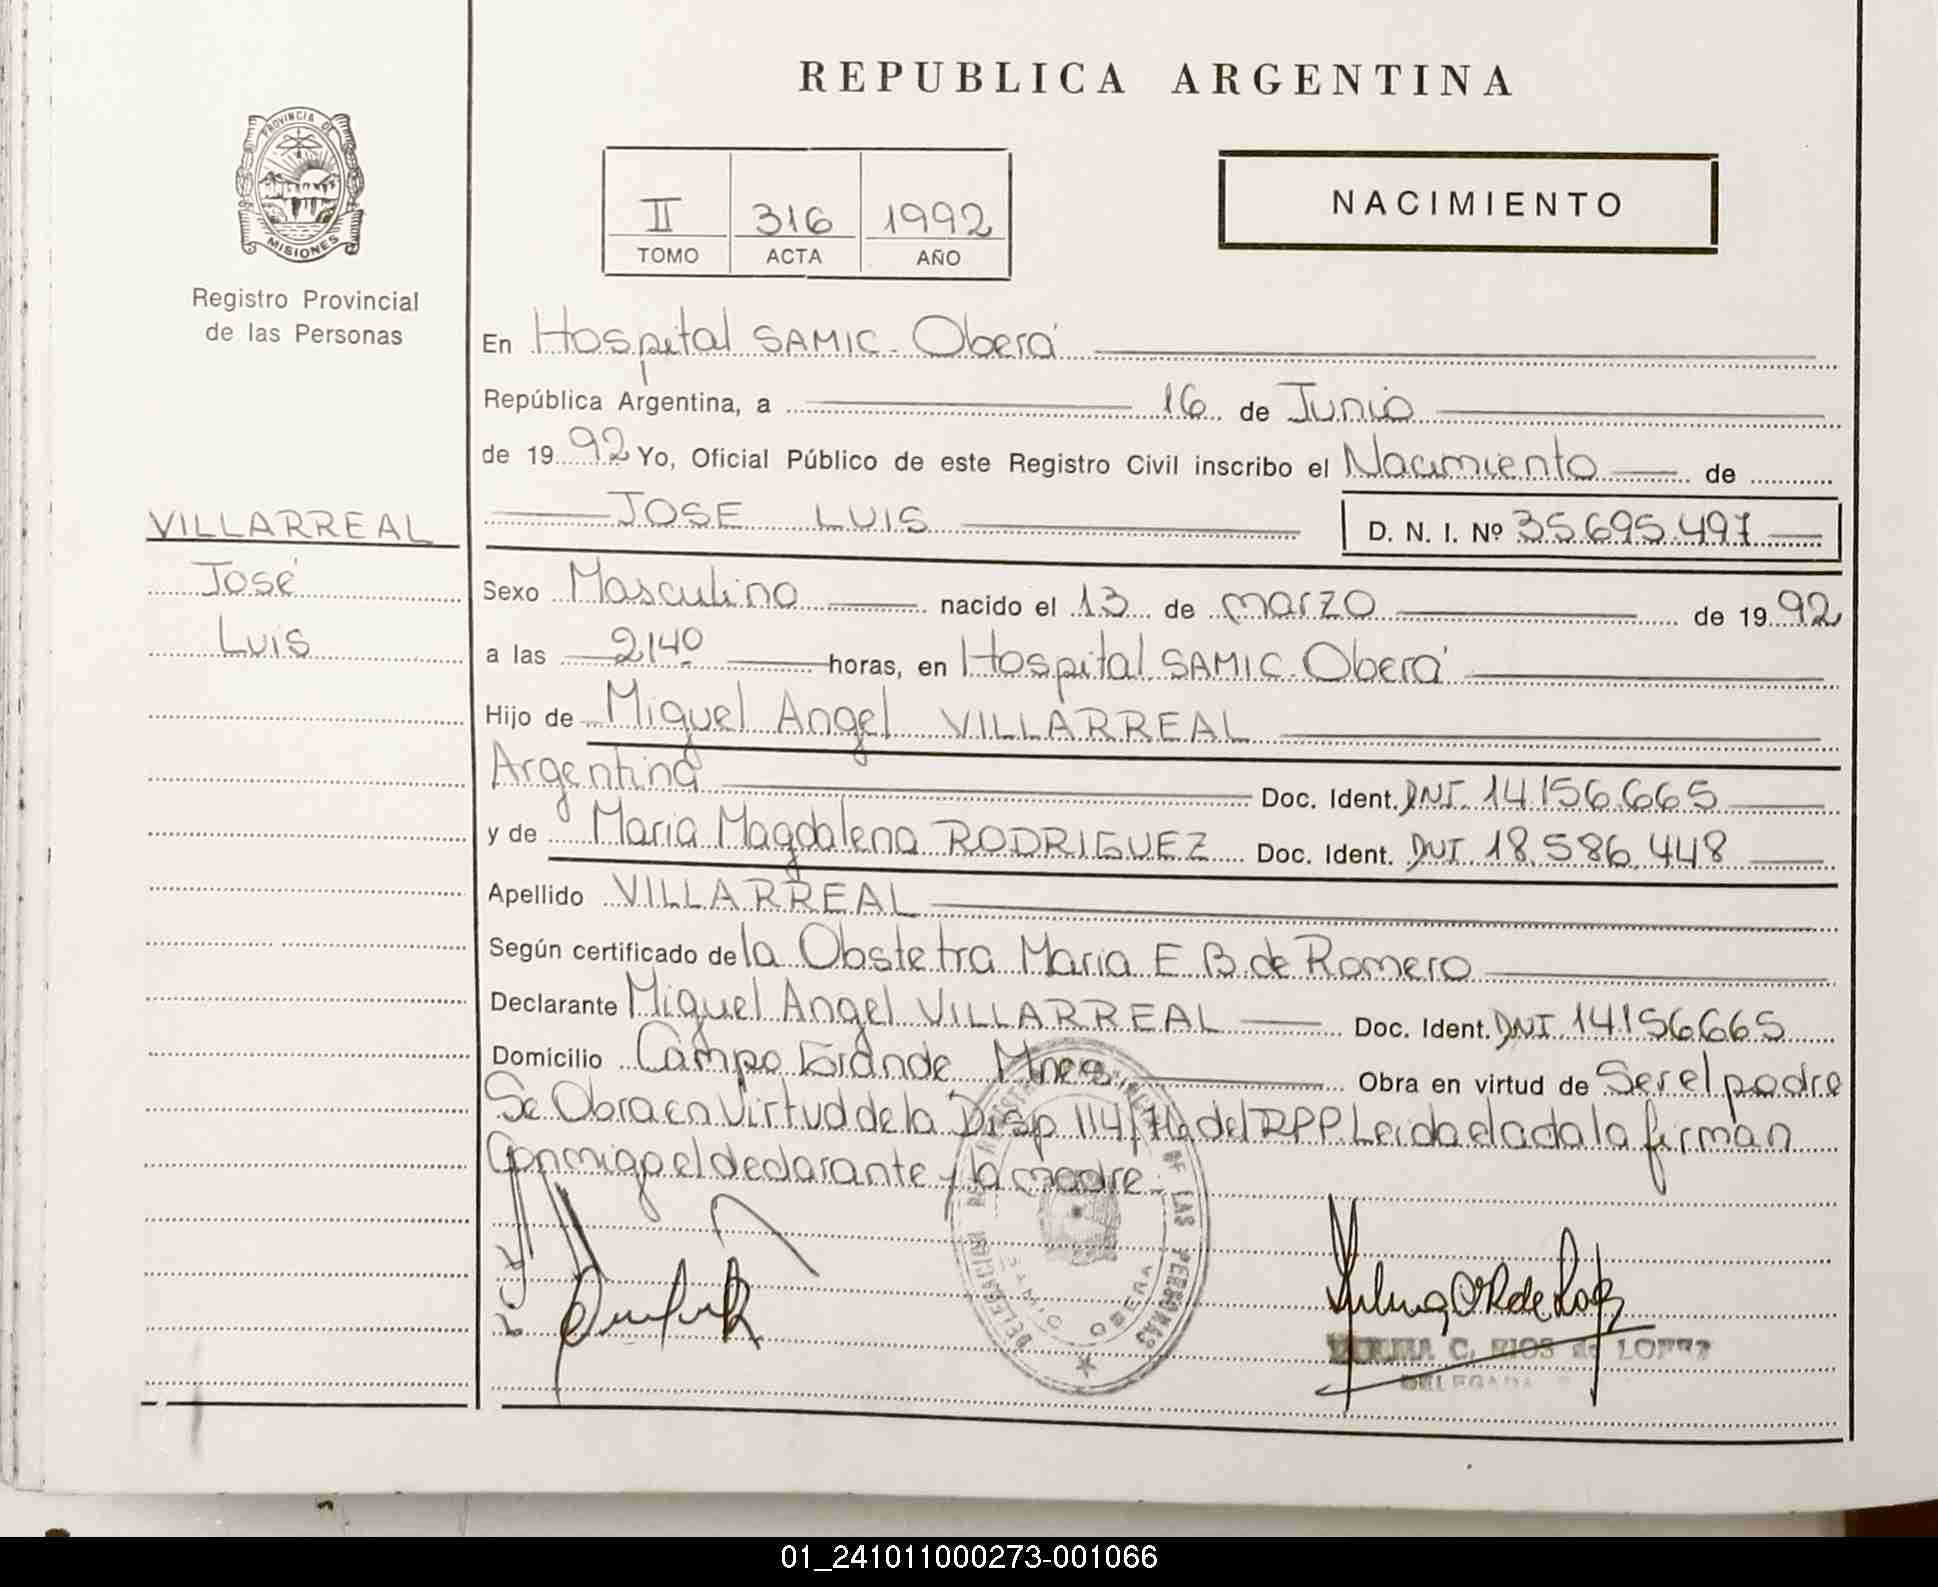 REPUBLICA ARGENTINA
PROVINCIA DE MISIONES
Registro Provincial
de las Personas
II 316 1992
TOMO ACTA AÑO
NACIMIENTO
VILLARREAL
José
Luis
En Hospital SAMIC - Oberá
República Argentina, a 16 de Junio
de 1992 Yo, Oficial Público de este Registro Civil inscribo el Nacimiento de
JOSE LUIS D. N. I. Nº 35.695.497
Sexo Masculino nacido el 13 de marzo de 1992
a las 2140 horas, en Hospital SAMIC - Oberá
Hijo de Miguel Angel VILLARREAL
Argentina Doc. Ident. DNI. 14156.665
y de Maria Magdalena RODRIGUEZ Doc. Ident. DNI 18.586.448
Apellido VILLARREAL
Según certificado de la Obstetra Maria E B. de Romero
Declarante Miguel Angel VILLARREAL Doc. Ident. DNI 14156665
Domicilio Campo Grande Mnes. Obra en virtud de Ser el padre
Se Obra en Virtud de la Disp 114/76 del RPP. Leida el acta la firman
Conmigo el declarante y la madre.-
DELEGACION OBERA
DE LAS PERSONAS
C. RIOS de LOPEZ
DELEGADA
01_241011000273-001066